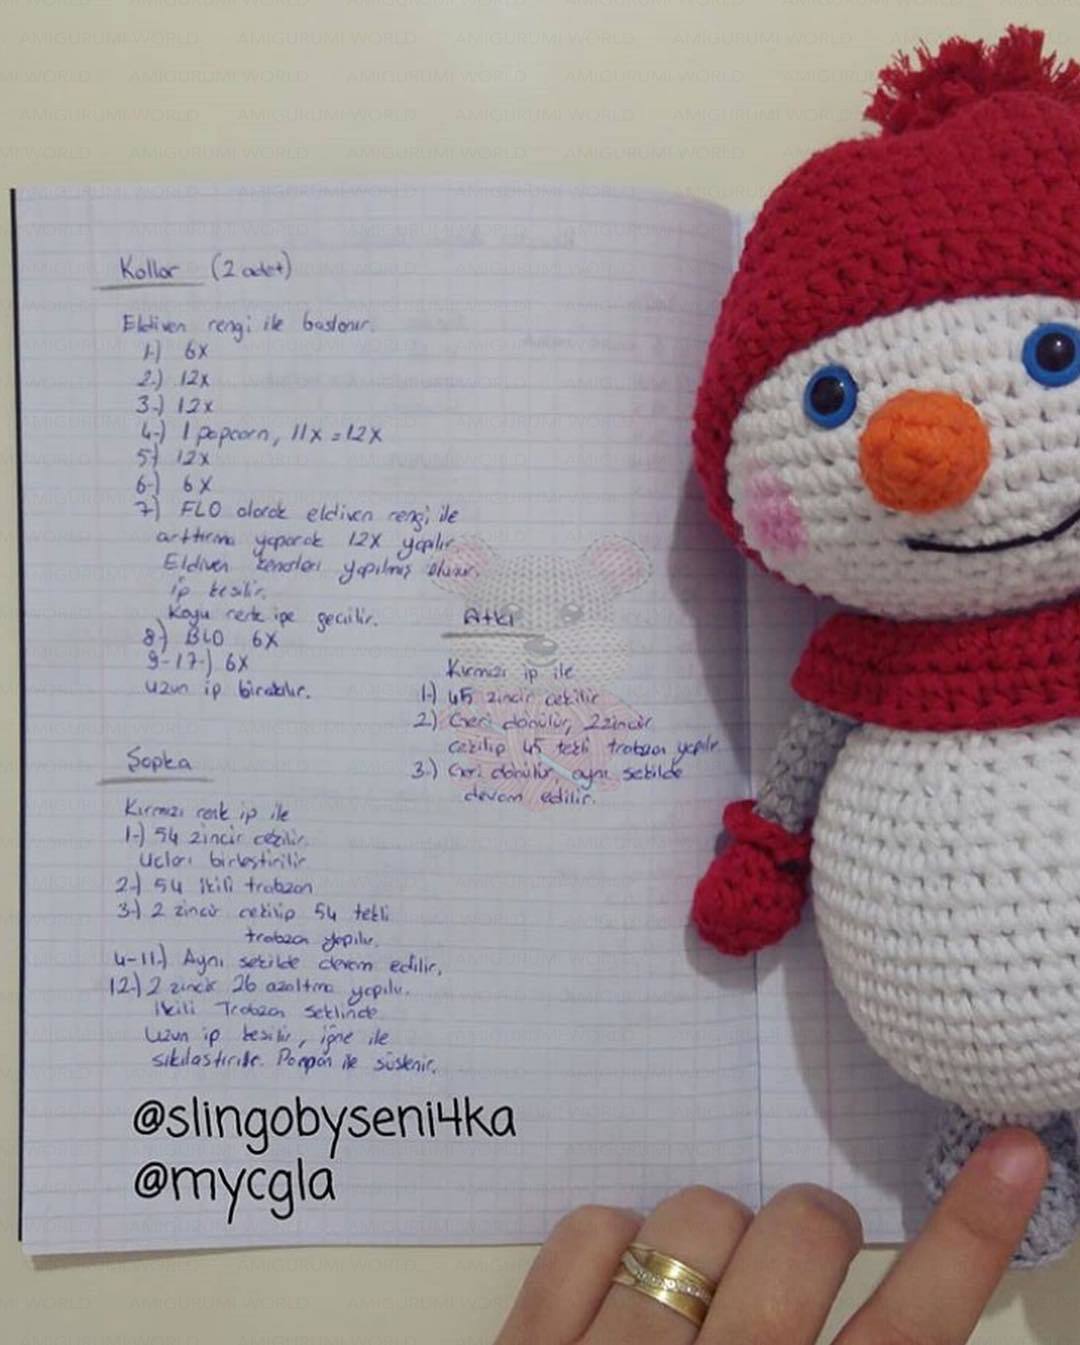 Kollar (2 adet)
Eldiven rengi ile başlanır.
1-) 6x
2-) 12x
3-) 12x
4-) 1 popcorn, 11x = 12x
5-) 12x
6-) 6x
7-) FLO olarak eldiven rengi ile
arttırma yaparak 12x yapılır
Eldiven kenarları yapılmış olunur.
ip kesilir.
Koyu renk ipe geçilir.
8-) BLO 6x
9-17-) 6x
uzun ip bırakılır.
Şapka
Kırmızı renk ip ile
1-) 54 zincir çekilir.
Uçları birleştirilir
2-) 54 ikili trabzan
3-) 2 zincir çekilip 54 tekli
trabzan yapılır.
4-11-) Aynı şekilde devam edilir.
12-) 2 zincir 26 azaltma yapılır.
İkili Trabzan şeklinde
Uzun ip kesilir, iğne ile
sıkılaştırılır. Ponpon ile süslenir.
Atkı
Kırmızı ip ile
1-) 45 zincir çekilir
2-) Geri dönülür, 2 zincir
çekilip 45 tekli trabzan yapılır
3-) Geri dönülür, aynı şekilde
devam edilir.
@slingobyseni4ka
@mycgla
AMIGURUMI WORLD